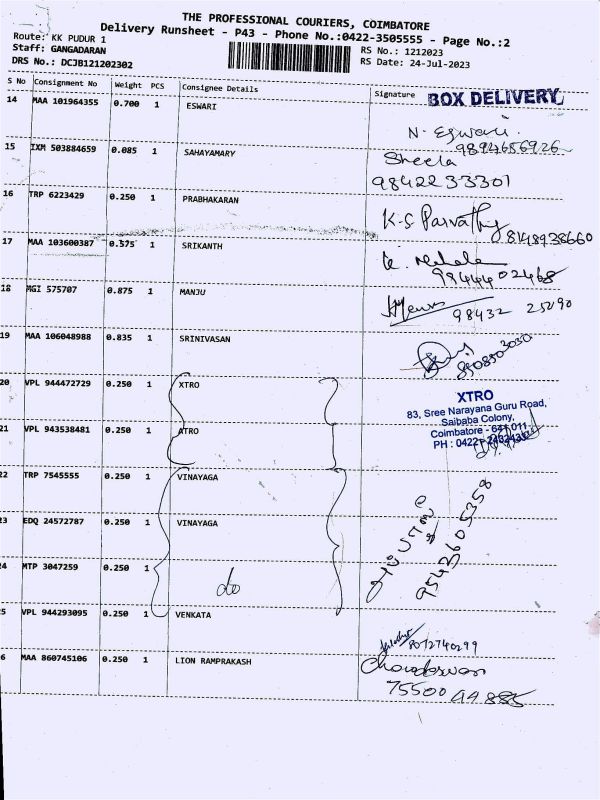 THE PROFESSIONAL COURIERS, COIMBATORE
Delivery Runsheet - P43 - Phone No.:0422-3505555 - Page No.:2
Route: KK PUDUR 1
Staff: GANGADARAN
DRS No.: DCJB121202302
RS No.: 1212023
RS Date: 24-Jul-2023
S No Consignment No Weight PCS Consignee Details Signature
BOX DELIVERY
14 MAA 101964355 0.700 1 ESWARI
N. Eswari.
9894656926
15 IXM 503884659 0.085 1 SAHAYAMARY
Sheela
9842233301
16 TRP 6223429 0.250 1 PRABHAKARAN
K-S Parvathy
8148938660
17 MAA 103600387 0.575 1 SRIKANTH
9844402468
18 MGI 575707 0.875 1 MANJU
98432 25090
19 MAA 106048988 0.835 1 SRINIVASAN
20 VPL 944472729 0.250 1 XTRO
XTRO
83, Sree Narayana Guru Road,
Saibaba Colony,
Coimbatore - 641 011
PH : 0422-2432433
21 VPL 943538481 0.250 1 XTRO
22 TRP 7545555 0.250 1 VINAYAGA
23 EDQ 24572787 0.250 1 VINAYAGA
9543605358
24 MTP 3047259 0.250 1
do
25 VPL 944293095 0.250 1 VENKATA
8072740299
26 MAA 860745106 0.250 1 LION RAMPRAKASH
75500 44885